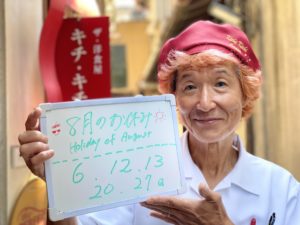 ザ・洋食屋
キチ・キチ
8月のお休み
Holiday of August
6. 12. 13
20. 27